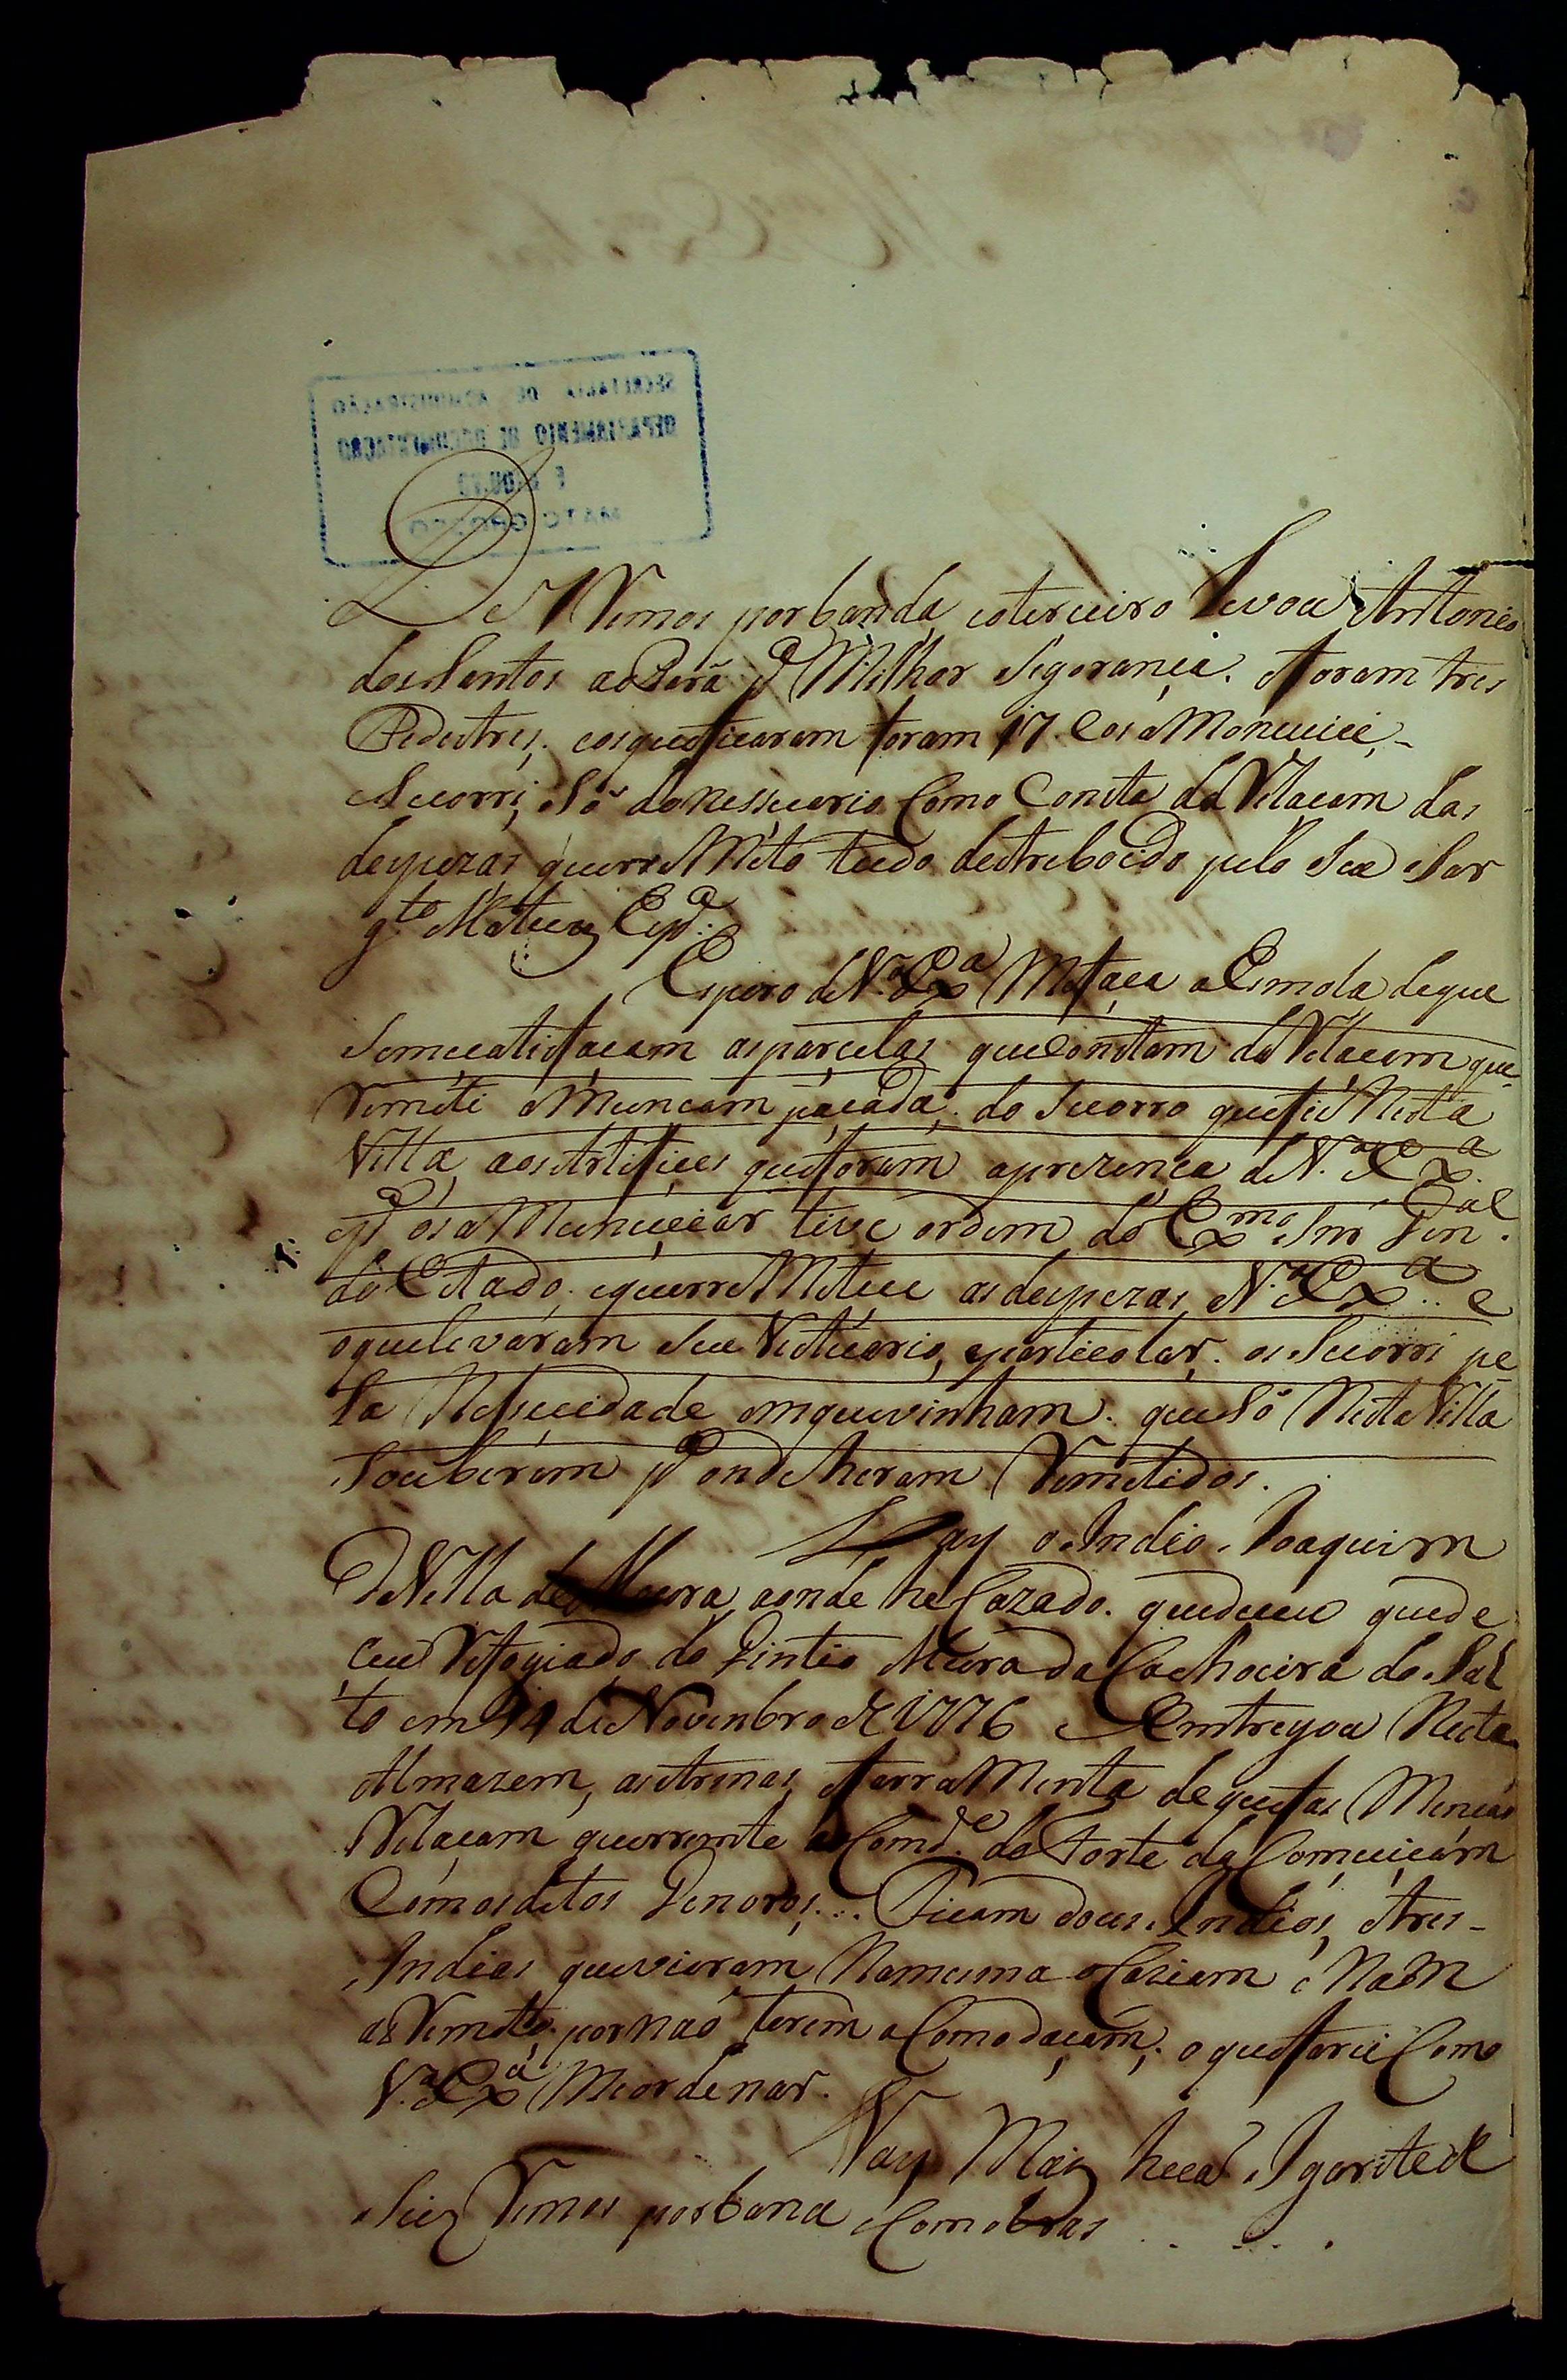 SECRETARIA DE ADMINISTRAÇÃO
DEPARTAMENTO DE DOCUMENTAÇÃO
E ARQUIVO
MATO GROSSO
De 7 Remos por banda, eoterceiro Levou Antonio
dos Santos aoPará pª Milhor Segorança. eForam tres
Pedestres, eosqueficaram foram 17. eos aMoniciei,
eSucorri, Só donessecario Como Consta da Relacam das
despezas queReMeto tudo destreboido pelo Seu Sar
g.to Mateuz Cipª.
Espero deV.ª Exª Mefaça aEsmola deque
Semesatisfacam asparcelas queConstam daRelacam que
Remeti aMuncam paçada, do Sucorro quefis Nesta
Villa, aosArtifices queforam aprezenca deV.ª Exª.
epª os aMuniciar tive ordem do Exmo Snr Genal.
do Estado. equerreMetece asdespezas, aV.ª Exª.. e
oquelevaram Seu Vestuario, eparticolar. os Sucorri pe
la Nessecidade emquevinham. queSó NestaVilla
Souberam pª ondeheram Remetidos.
Vay o Indio Joaquim
deVilla de Moura, aonde he Cazado. quedeceu quede
ceu Refogiado do Gintio Mura da Cachoeira do Sal
to em 14 deNovenbro de 1776 eEmtregou Nesta
Almazem, asArmas, eFarraMenta dequefas Mencao
Relaçam queremete oComde. do Forte da Comceicám
Comosditos Genoros... Ficam dous Indios, eTres
Indias quevieram Namesma oCaziam, eNam
asRemeto. pornaó terem aComodaçam; o quefarei Como
V.ª Exª Meordenar.
Vay Maiz hua Igarite de
Seiz Remos porbanda Comobras . . . . .